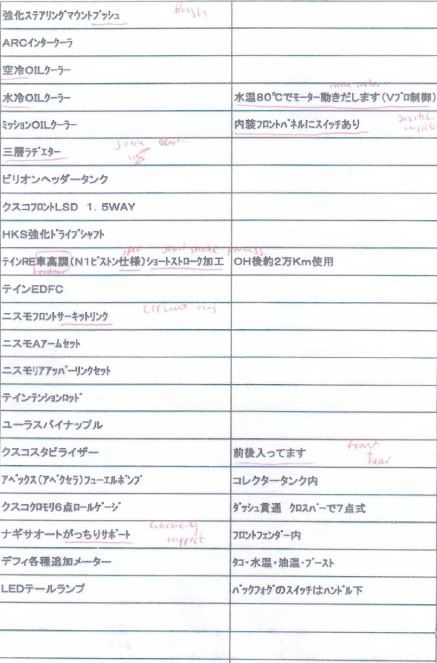 強化ステアリングマウントブッシュ
ARCインタークーラ
空冷OILクーラー
水冷OILクーラー 水温80℃でモーター動きだします(Vプロ制御)
ミッションOILクーラー 内装フロントパネルにスイッチあり
三層ラヂエター
ビリオンヘッダータンク
クスコフロントLSD 1.5WAY
HKS強化ドライブシャフト
テインRE車高調(N1ピストン仕様)ショートストローク加工 OH後約2万Km使用
テインEDFC
ニスモフロントサーキットリンク
Circuit ring
ニスモAアームセット
ニスモリアアッパーリンクセット
テインテンションロッド
ユーラスパイナップル
クスコスタビライザー 前後入ってます
front
rear
アペックス(アペクセラ)フューエルポンプ コレクタータンク内
クスコクロモリ6点ロールゲージ ダッシュ貫通 クロスバーで7点式
ナギサオートがっちりサポート フロントフェンダー内
support
デフィ各種追加メーター タコ・水温・油温・ブースト
LEDテールランプ バックフォグのスイッチはハンドル下